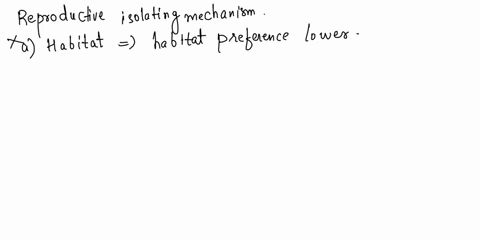 Reproductive isolating mechanism.
a) Habitat => habitat preference lower.